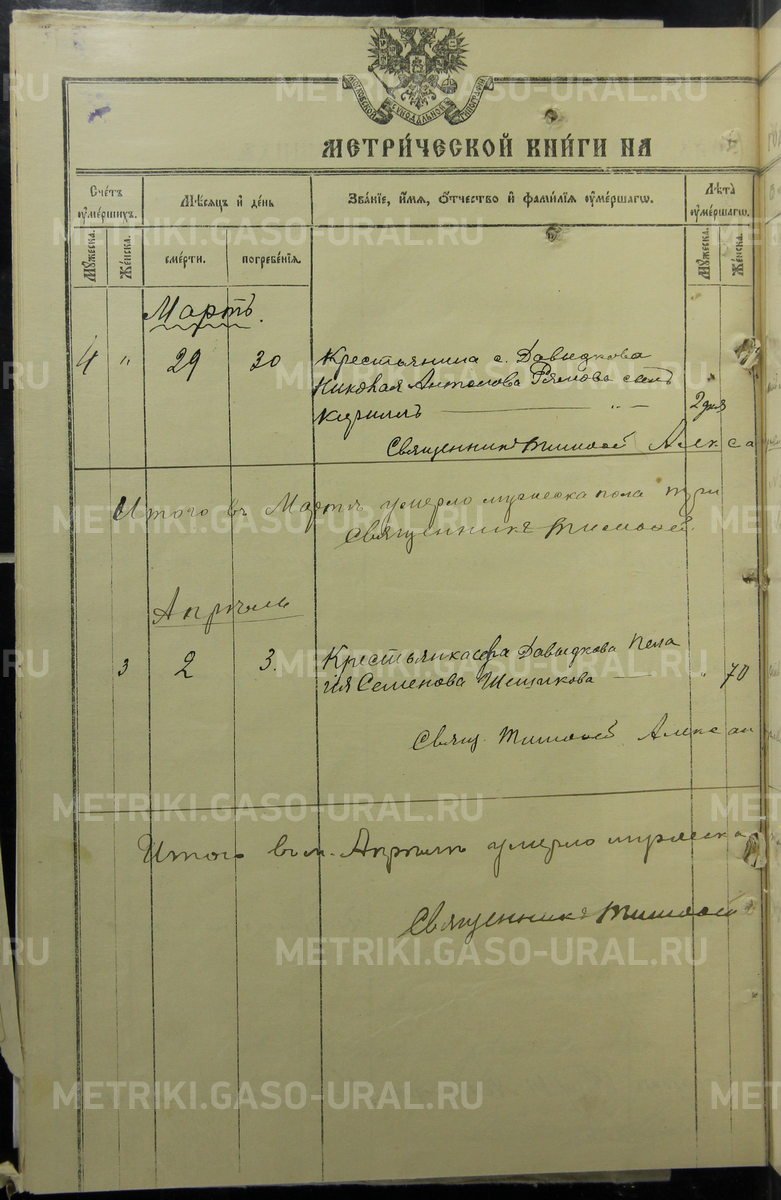 МОСКОВСКОЙ СѴНОДАЛЬНОЙ ТИПОГРАФІИ
МЕТРИ́ЧЕСКОЙ КНИ́ГИ НА
Сче́тъ ᲂумє́ршихъ.
Мѣсяцъ и де́нь
Зва́нїе, и́мя, ѻ́тчество и фами́лїя ᲂуме́ршагѡ.
Лѣта̀ ᲂуме́ршагѡ.
Мꙋ́жеска.
Же́нска.
сме́рти.
погребе́нїя.
Мꙋ́жеска.
Же́нска.
Мартъ.
4 " 29 30 Крестьянина с. Давыдкова
Николая Антонова сынъ
Кириллъ — " — 2 дня
Священникъ Тимофей Алекса
Итого въ Мартѣ умерло мужеска пола три
Священникъ Тимофей
Апрѣль
3 2 3. Крестьянка села Давыдкова Пела
гія Семенова — " 70
Свящ. Тимофей Алексан
Итого въ м. Апрѣлѣ умерло мужеска
Священникъ Тимофей
METRIKI.GASO-URAL.RU